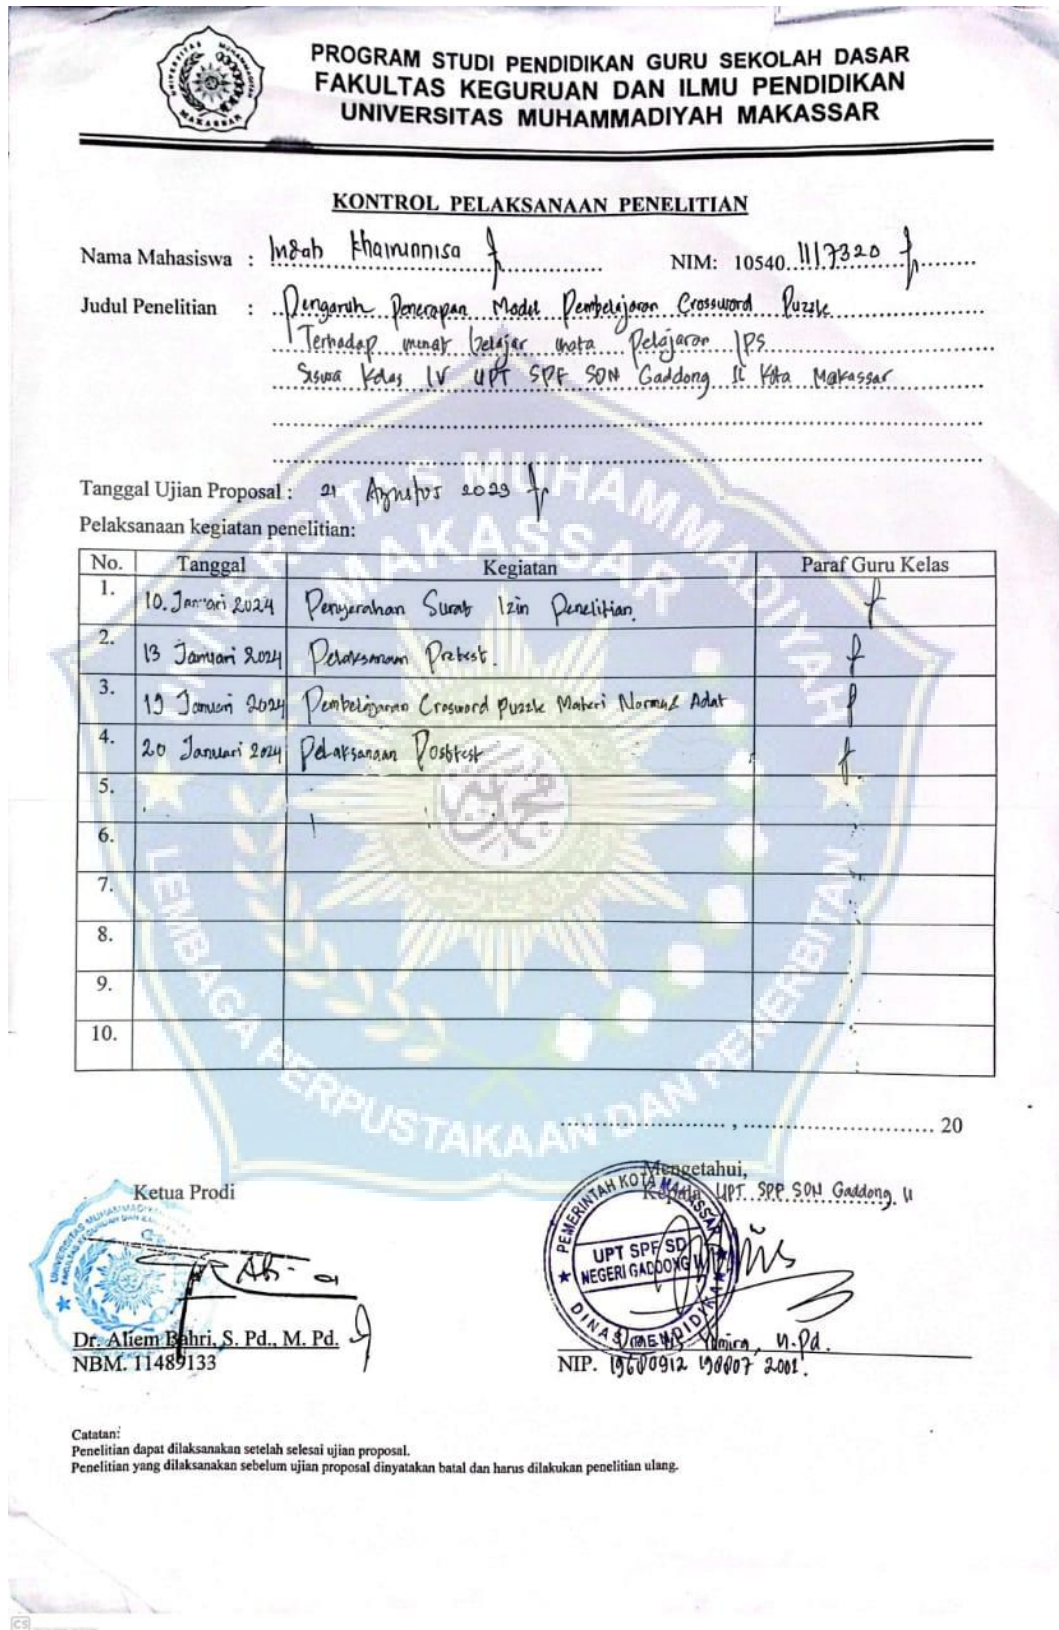 PROGRAM STUDI PENDIDIKAN GURU SEKOLAH DASAR
FAKULTAS KEGURUAN DAN ILMU PENDIDIKAN
UNIVERSITAS MUHAMMADIYAH MAKASSAR
KONTROL PELAKSANAAN PENELITIAN
Nama Mahasiswa : Indah Khairunnisa NIM: 10540 1117320
Judul Penelitian : Pengaruh Penerapan Model Pembelajaran Crossword Puzzle
Terhadap minat belajar mata Pelajaran IPS
Siswa Kelas IV UPT SPF SDN Gaddong II Kota Makassar
Tanggal Ujian Proposal : 21 Agustus 2023
Pelaksanaan kegiatan penelitian:
No. Tanggal Kegiatan Paraf Guru Kelas
1. 10 Januari 2024 Penyerahan Surat Izin Penelitian.
2. 13 Januari 2024 Pelaksanaan Pretest.
3. 19 Januari 2024 Pembelajaran Crosword Puzzle Materi Norma & Adat
4. 20 Januari 2024 Pelaksanaan Posttest
5.
6.
7.
8.
9.
10.
UNIVERSITAS MUHAMMADIYAH
MAKASSAR
LEMBAGA PERPUSTAKAAN DAN PENERBITAN
, 20
Mengetahui,
Ketua Prodi Kepala UPT SPF SDN Gaddong II
PEMERINTAH KOTA MAKASSAR
UPT SPF SD
NEGERI GADDONG II
DINAS PENDIDIKAN
Dr. Aliem Bahri, S. Pd., M. Pd. M.Pd.
NBM. 11489133 NIP. 19680912 198807 2001.
Catatan:
Penelitian dapat dilaksanakan setelah selesai ujian proposal.
Penelitian yang dilaksanakan sebelum ujian proposal dinyatakan batal dan harus dilakukan penelitian ulang.
CS